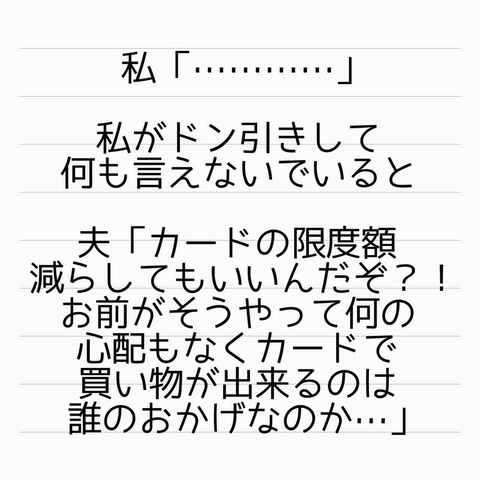 私「…………」
私がドン引きして
何も言えないでいると
夫「カードの限度額
減らしてもいいんだぞ？！
お前がそうやって何の
心配もなくカードで
買い物が出来るのは
誰のおかげなのか…」